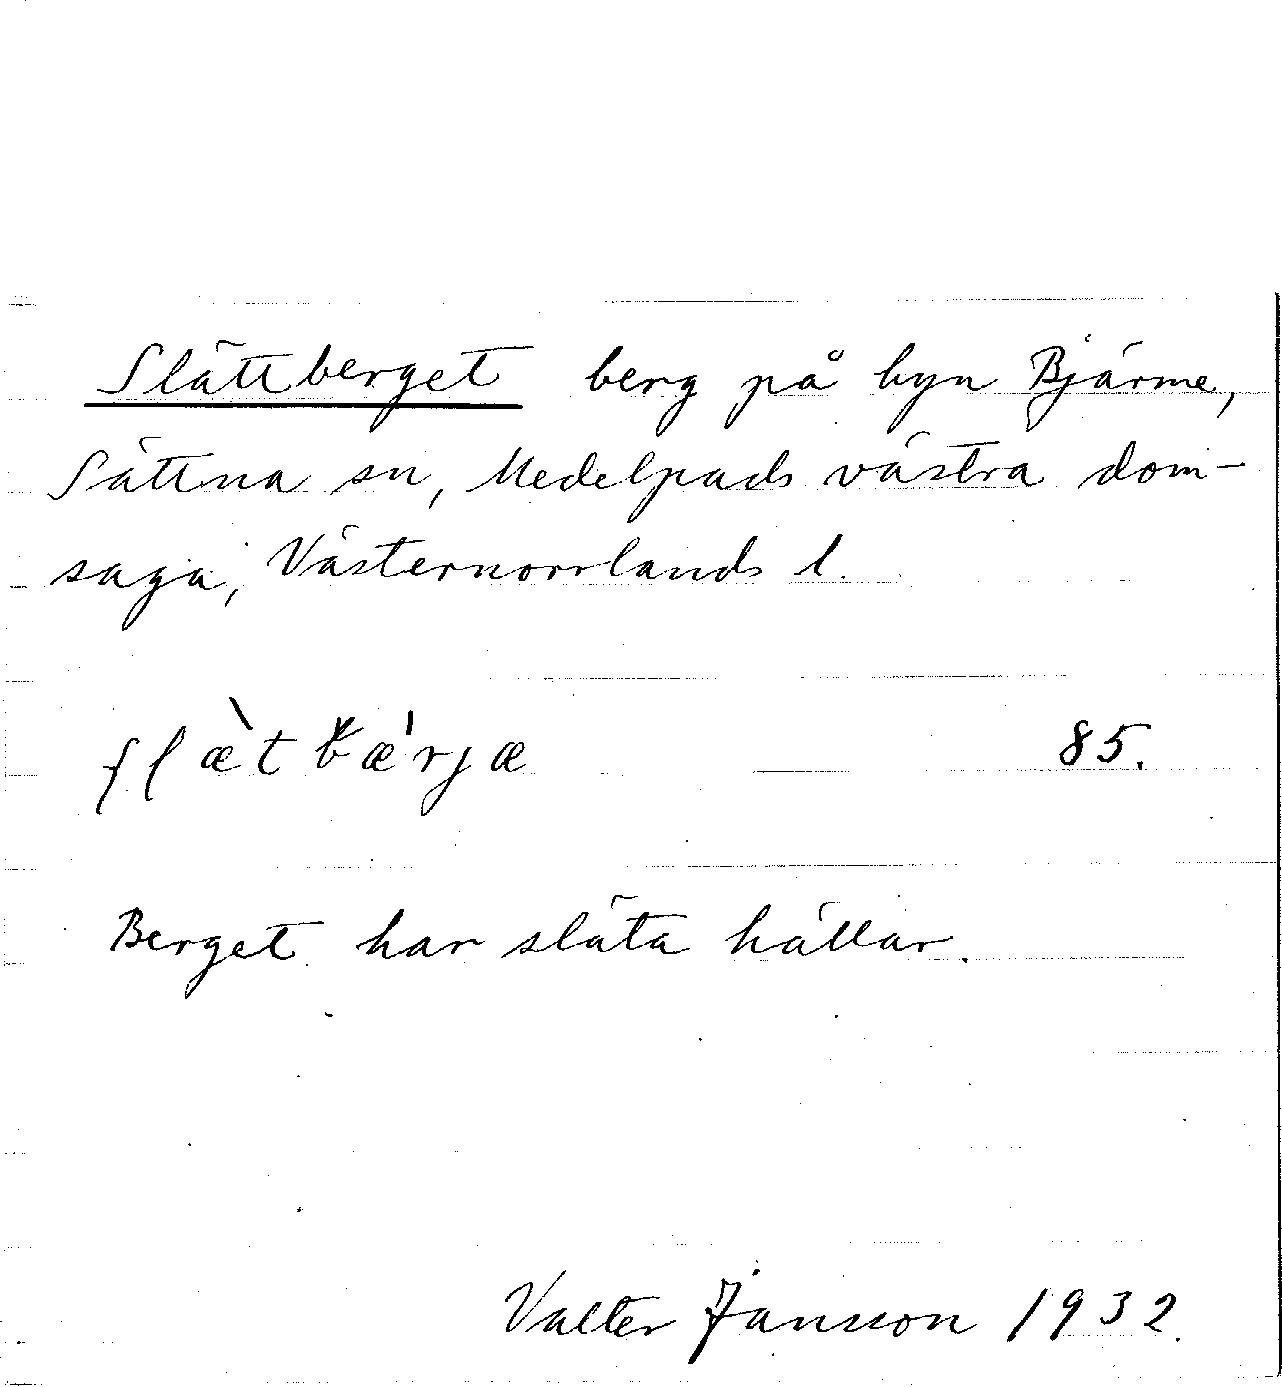 Slättberget berg på byn Bjärme,
Sättna sn, Medelpads västra dom-
saga, Västernorrlands l.
ʃlæ̀tbæ̍rjæ 85.
Berget har släta hällar.
Valter Jansson 1932.